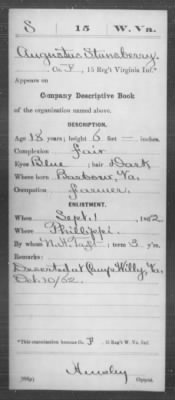 S 15 W. Va.
Augustus Stansberry.
Co. F, 15 Reg't Virginia Inf.*
Appears on
Company Descriptive Book
of the organization named above.
DESCRIPTION.
Age 18 years; height 6 feet — inches.
Complexion Fair
Eyes Blue; hair Dark
Where born Barbour, Va.
Occupation Farmer.
ENLISTMENT.
When Sept. 1, 1862
Where Phillippi.
By whom ; term 3 y'rs.
Remarks:
Deserted at Camp Willy, Va,
Oct. 10/62.
*This organization became Co. F, 15 Reg't W. Va. Inf.
Copyist.